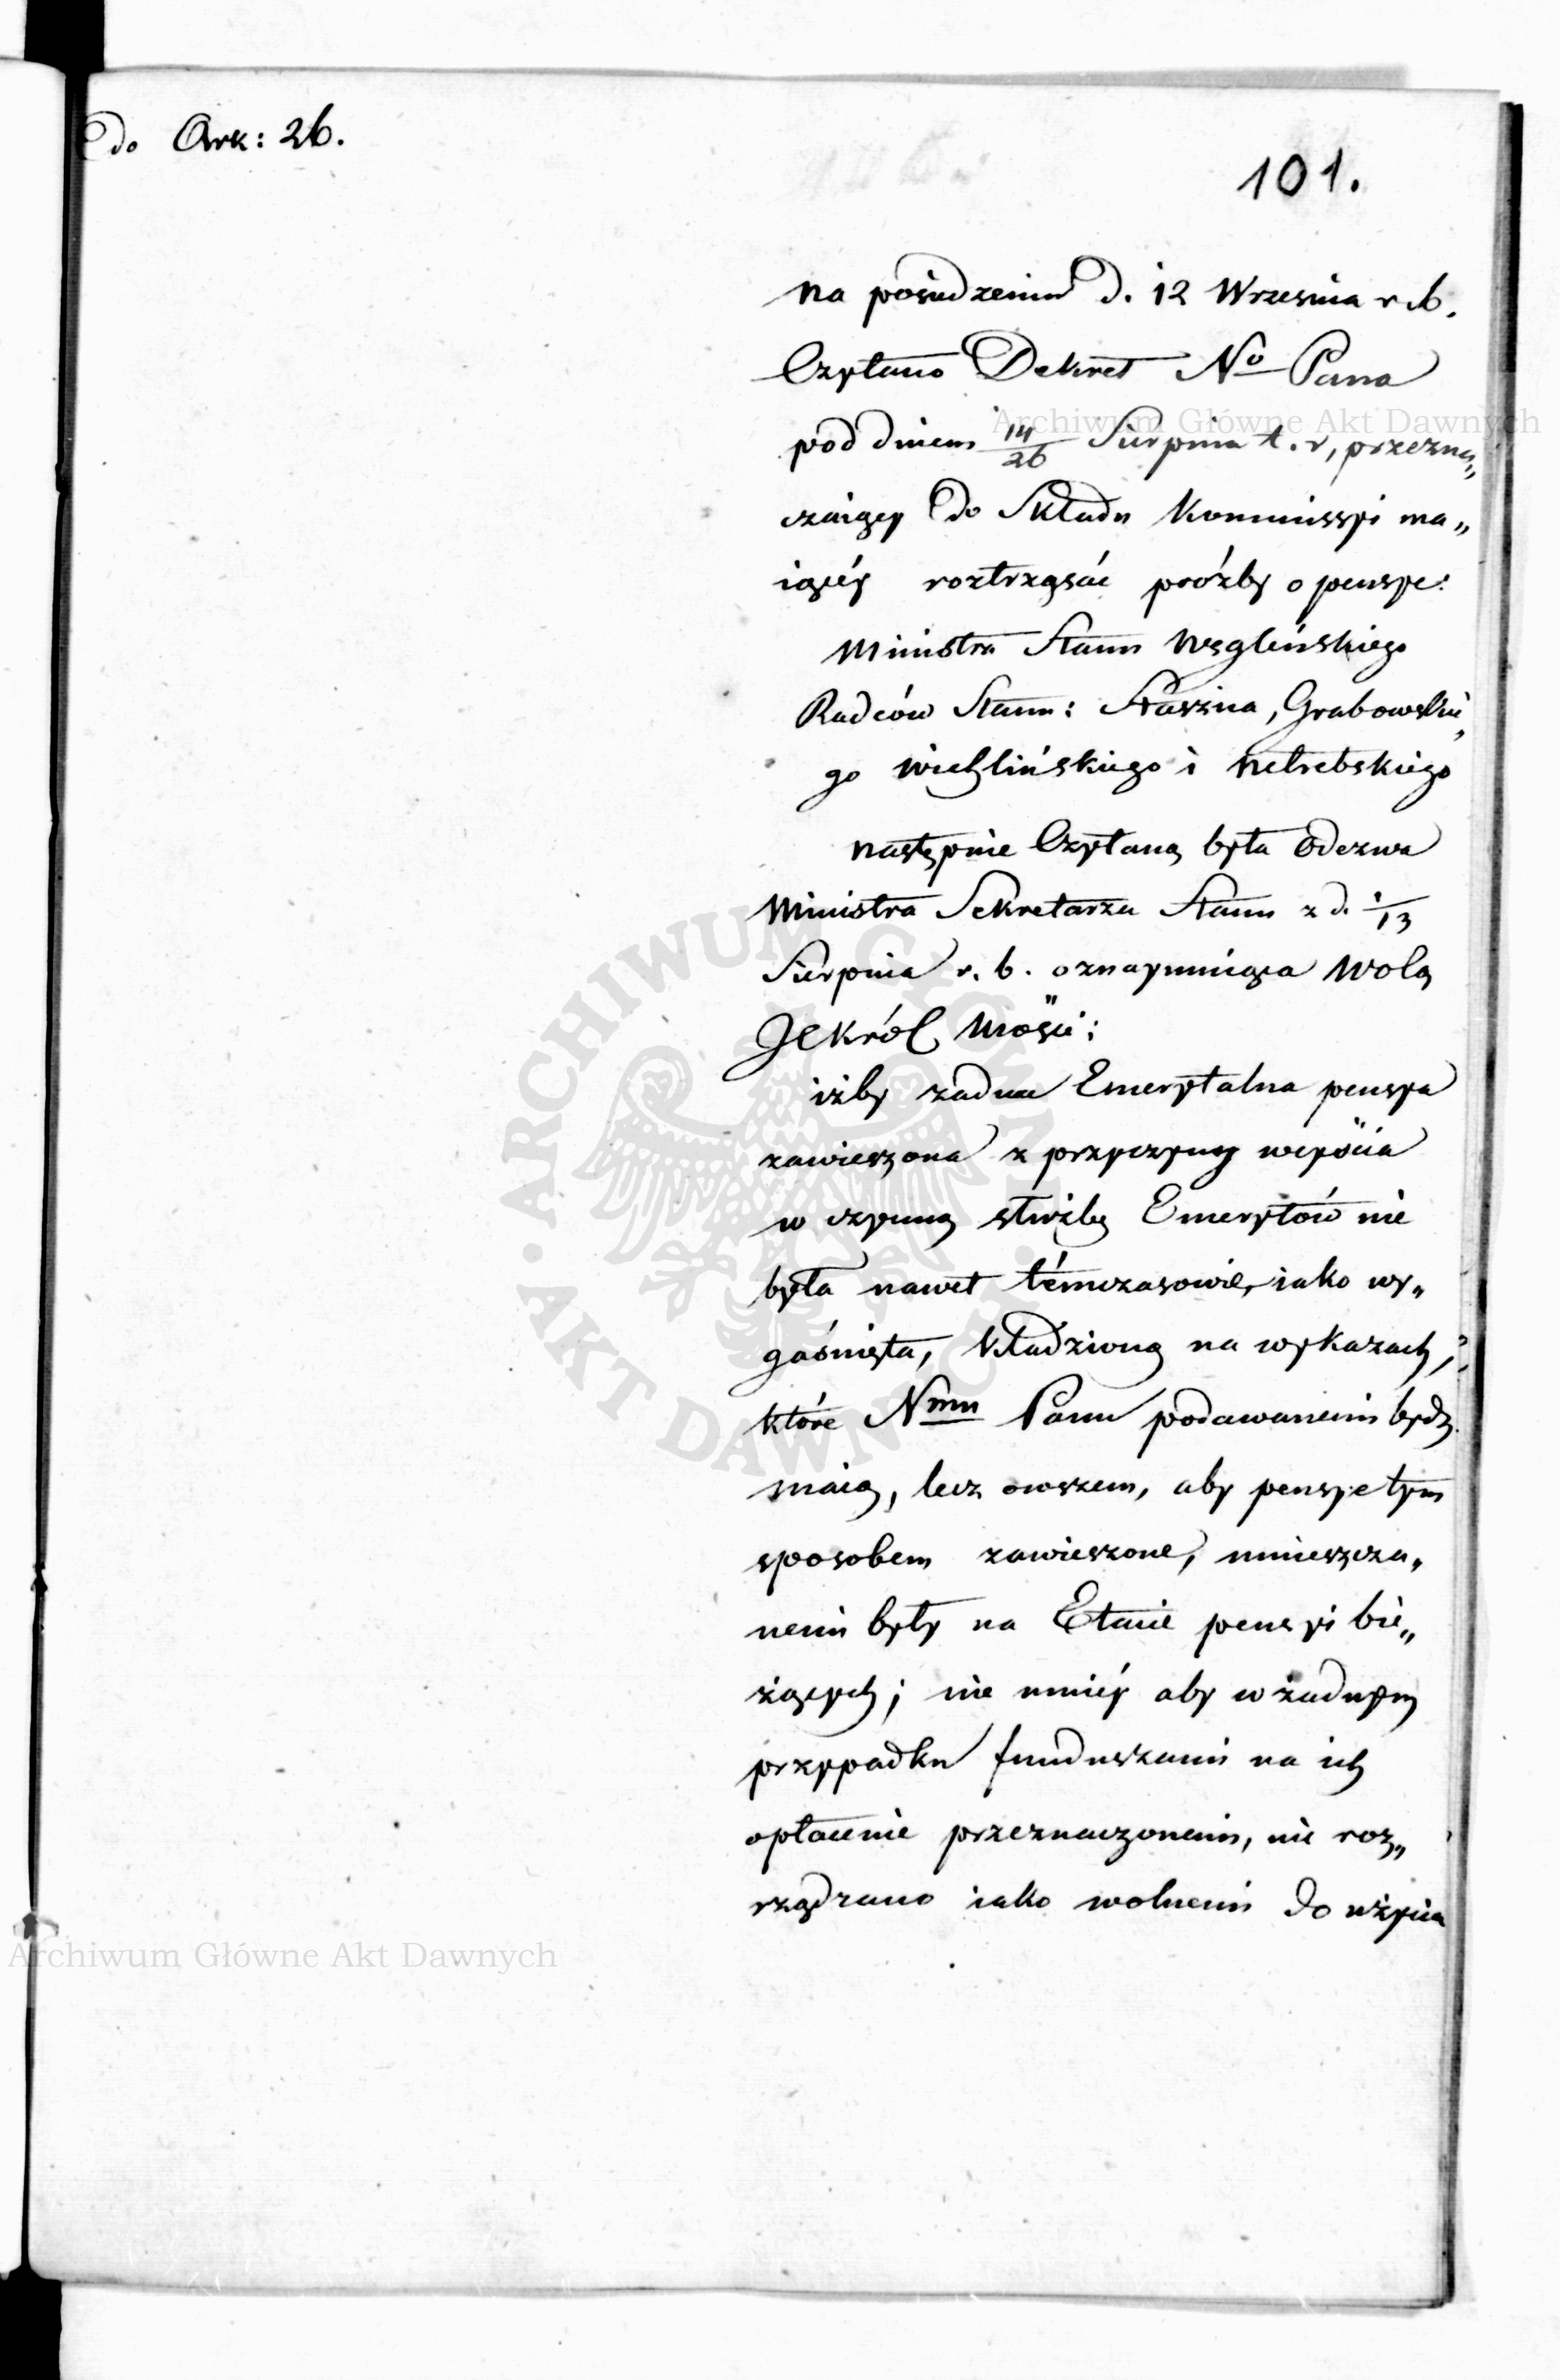 do Ark: 26.
101.
na posiedzeniu d. 12 Wrzesnia r. b.
Czytano Dekret No Pana
pod dniem 14/26 Sierpnia t. r, przezna„
czaiący do Składu Kommissyi ma„
iącéy roztrząsać próźby o pensye:
Ministra Stanu Węgleńskiego
Radców Stanu: Staszica, Grabowskie„
go Wichlińskiego i Netrebskiego
następnie Czytaną była Odezwa
Ministra Sekretarza Stanu z d. 1/13
Sierpnia r. b. oznaymuiąca Wolą
JeKról Mości:
iżby zadna Emerytalna pensya
zawieszona z przyczyny weyścia
w czynną służbę Emerytów nie
była nawet témczasowie, iako wy„
gaśnięta, kładzioną na wykazach,
które Nmu Panu podawanemi bydź
maią, lecz owszem, aby pensye tym
sposobem zawieszone, umieszcza„
nemi były na Etacie pensyi bie„
żących; nie mniéy aby w żadnym
przypadku funduszami na ich
opłacenie przeznaczonemi, nie roz„
rządzano iako wolnemi do użycia
Archiwum Główne Akt Dawnych
Archiwum Główne Akt Dawnych
ARCHIWUM GŁÓWNE AKT DAWNYCH